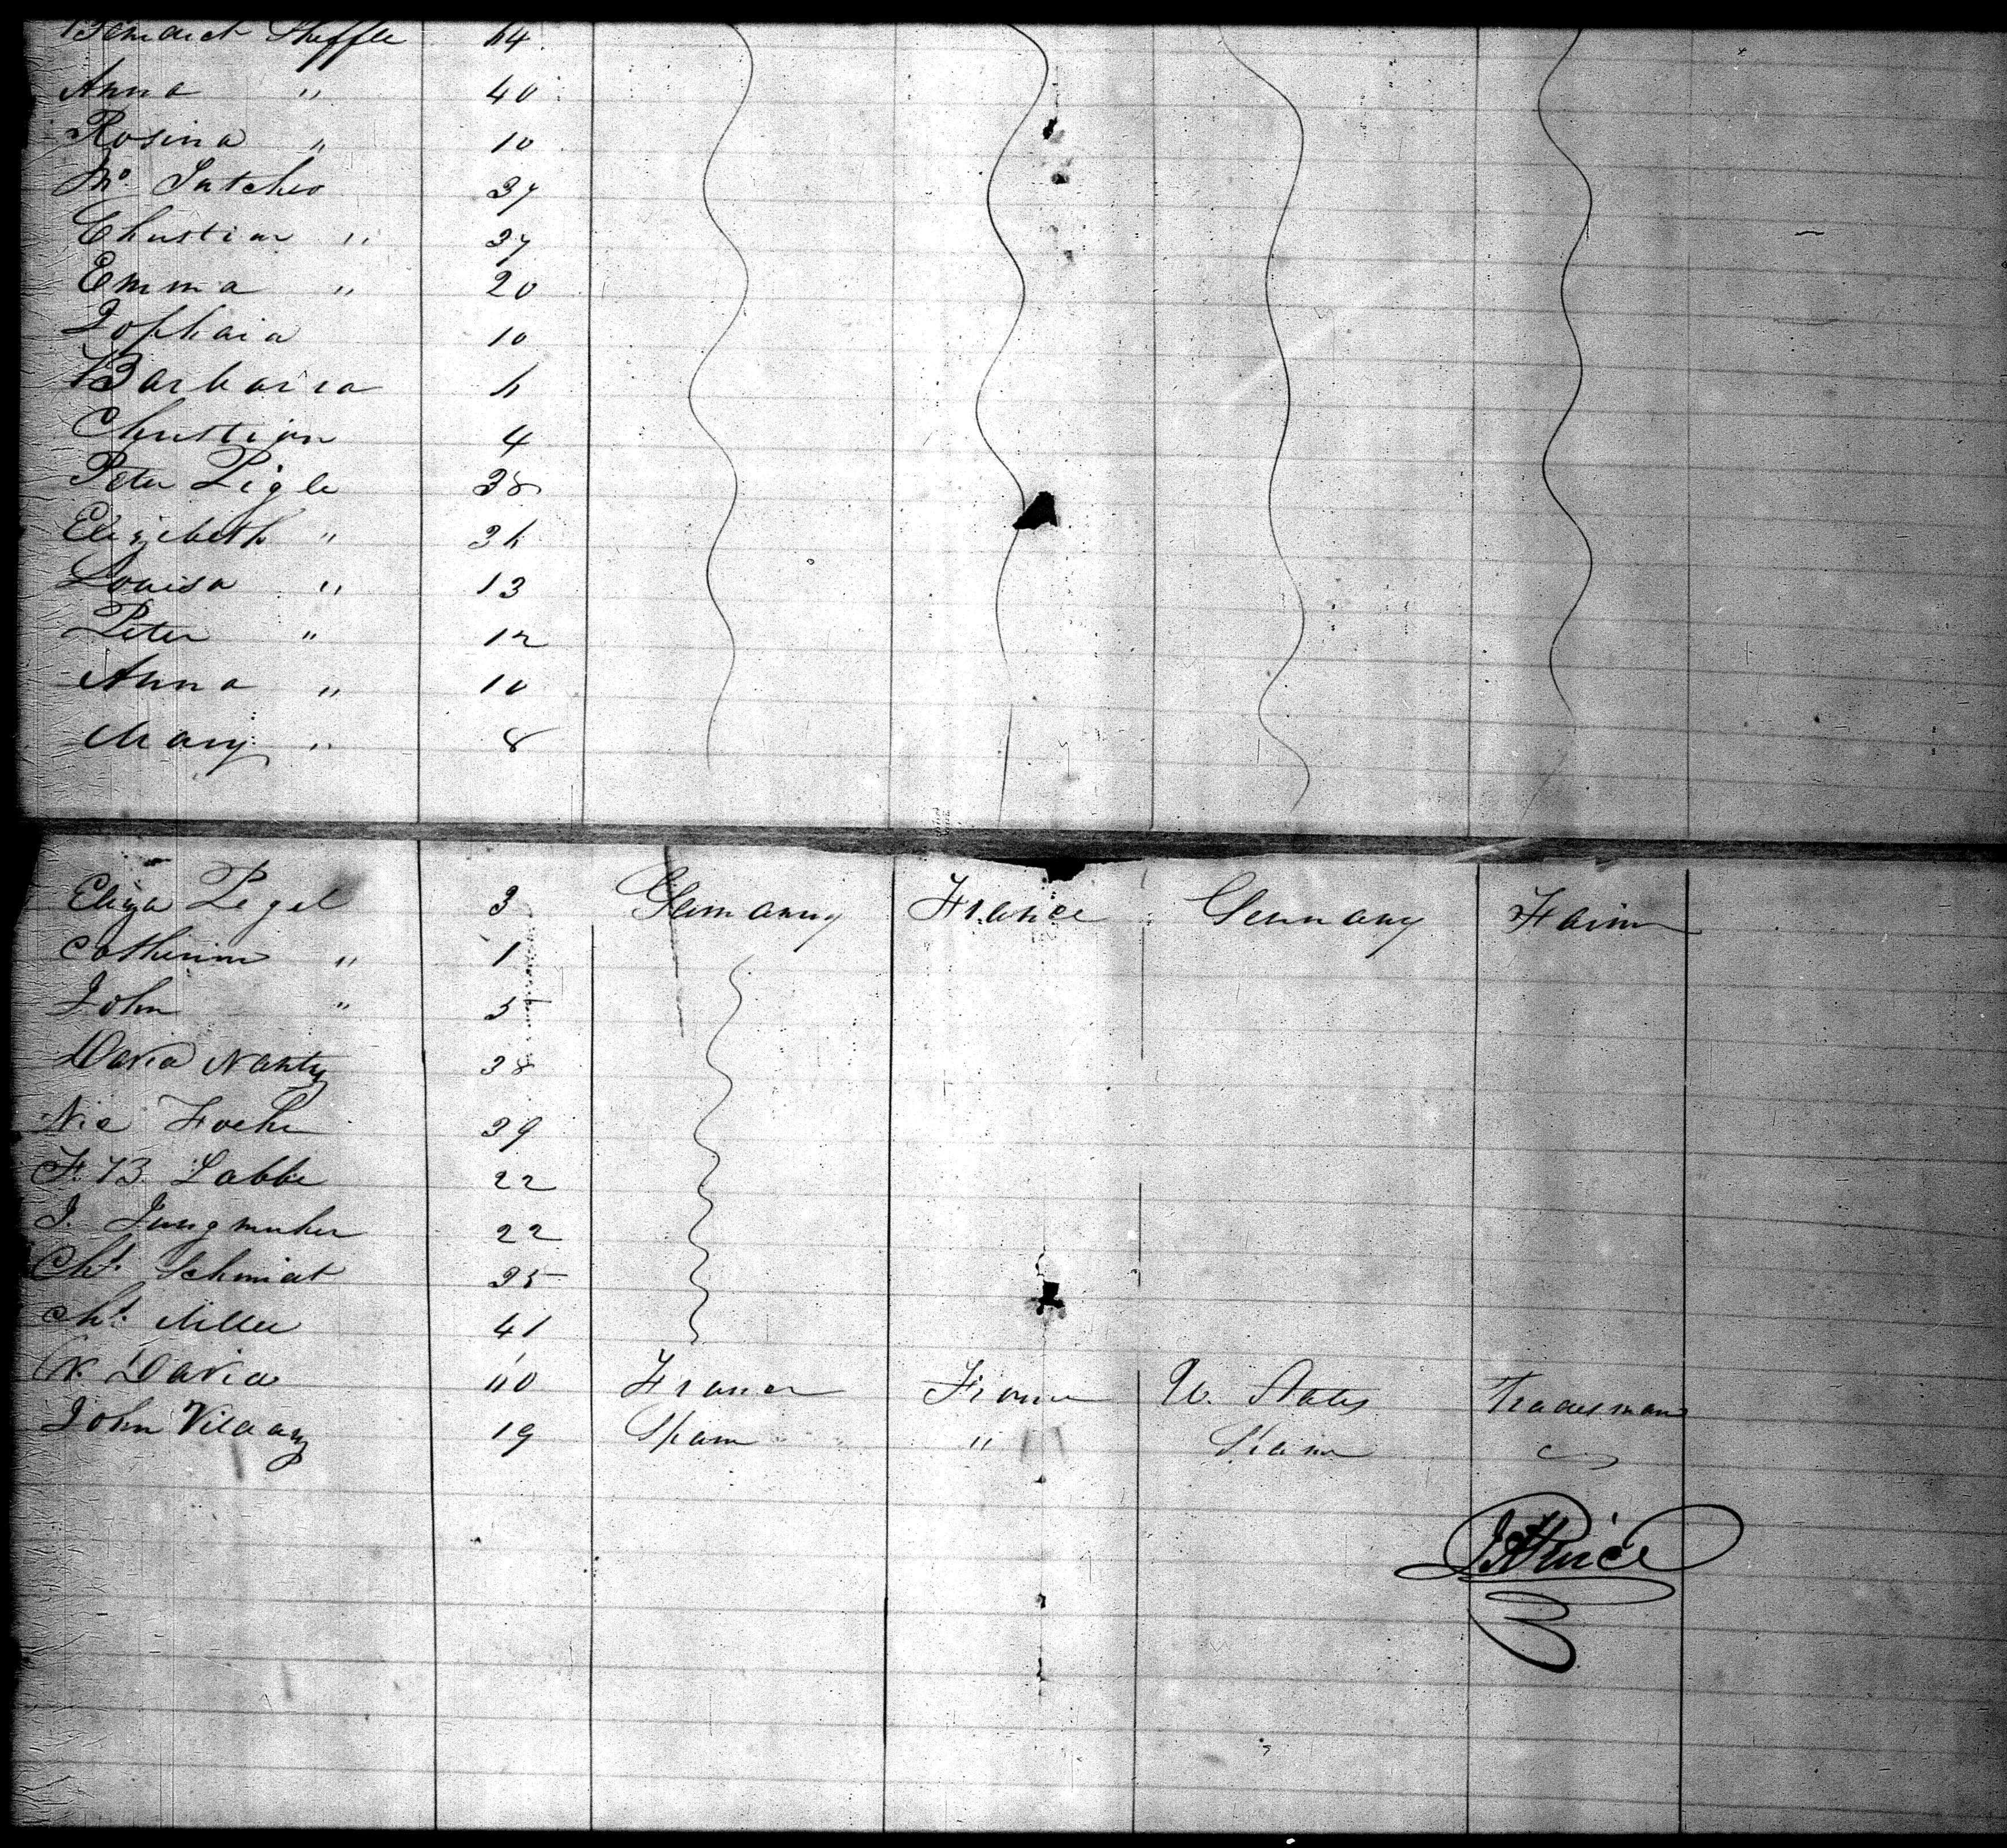 Benedict Sheffle 64
Anna " 40
Rosina " 10
37
Christian " 37
Emma " 20
Sophaia 10
Barbaira 6
Christian 4
Peter Zigle 38
Elizabeth " 36
Louisa " 13
Peter " 12
Anna " 10
Mary " 8
Eliza Zegel 3 Germany France Germany Farm
Catherine " 1
John " 5
David 38
Nic 39
F. B. Labbe 22
J. 22
Cht. Schmidt 35
Cht. Miller 41
N. David 60 France France U. States Tradesman
John 19 Spain " Spain "